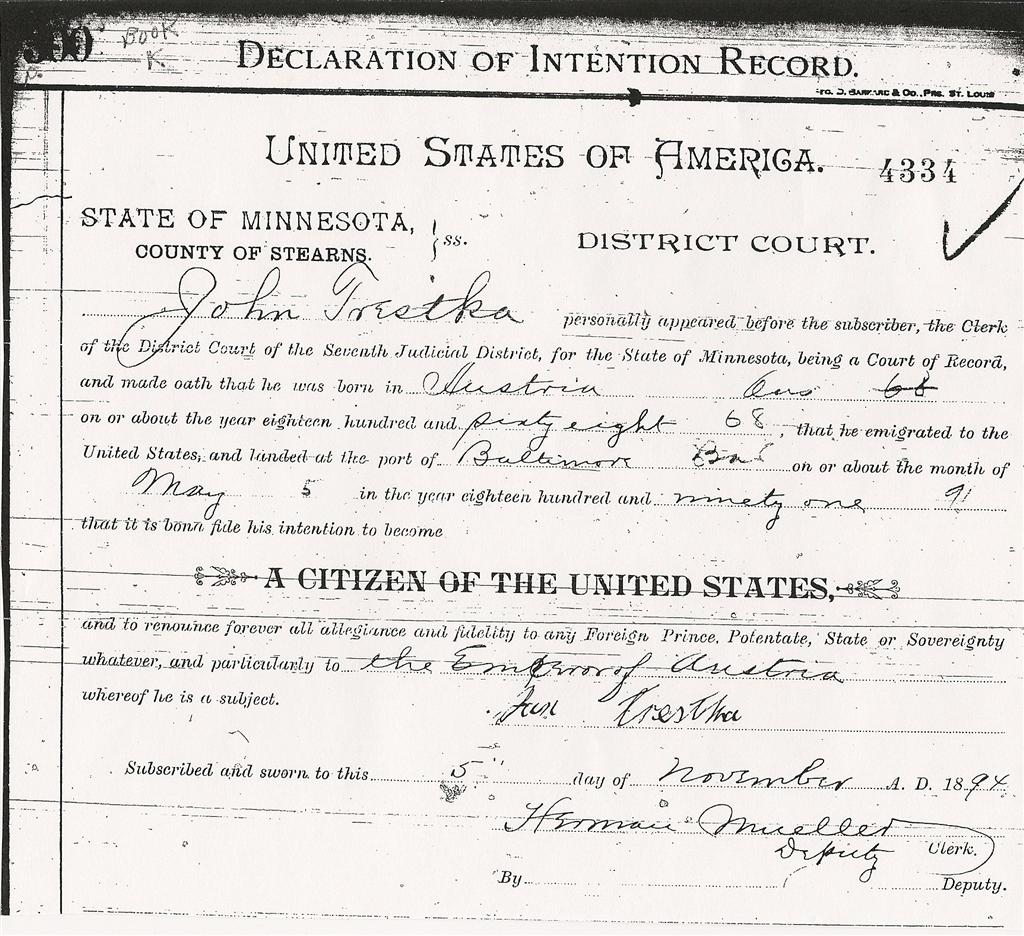 300 BOOK
K
DECLARATION OF INTENTION RECORD.
& Co., Prs. St. Louis
UNITED STATES OF AMERICA. 4334
STATE OF MINNESOTA,
COUNTY OF STEARNS. } ss. DISTRICT COURT.
John Trestka personally appeared before the subscriber, the Clerk
of the District Court of the Seventh Judicial District, for the State of Minnesota, being a Court of Record,
and made oath that he was born in Austria Aus 68
on or about the year eighteen hundred and sixty eight 68, that he emigrated to the
United States, and landed at the port of Baltimore on or about the month of
May 5 in the year eighteen hundred and ninety one 91
that it is bona fide his intention to become
A CITIZEN OF THE UNITED STATES,
and to renounce forever all allegiance and fidelity to any Foreign Prince, Potentate, State or Sovereignty
whatever, and particularly to the Emperor of Austria
whereof he is a subject.
Jan Trestka
Subscribed and sworn to this 5" day of November A. D. 1894
Herman Mueller
Deputy Clerk.
By Deputy.